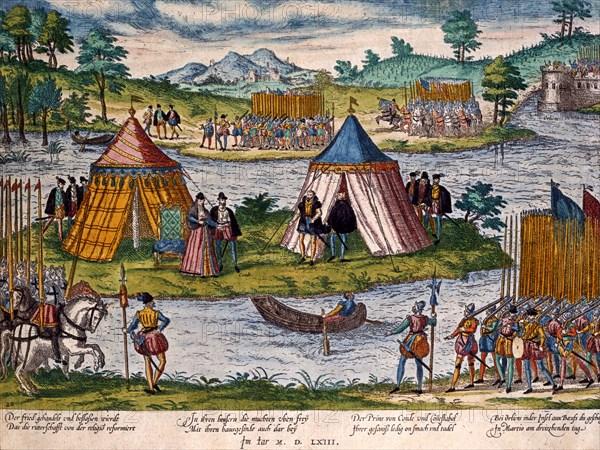 Der fried gehandelt vnd beschlossen würdt
Das die ritterschafft von der religiō reformiert
In ihren heusern die muchten vben frey
Mit ihren haussgesinde auch dar bey
Der Prins von Conde vnd Cōnestabel
Ihrer gefencknis ledig on smach vnd tadel
Bei Orliens inder Insel
In Martio am dreizehenden tag
Im iar M. D. LXIII.